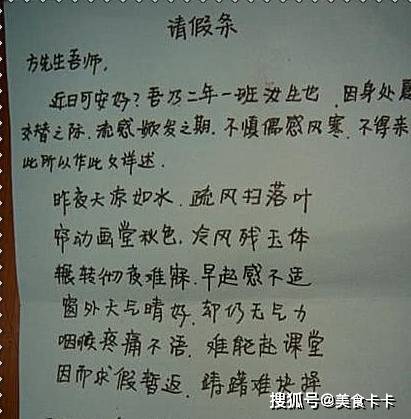 请假条
方先生吾师,
近日可安好?吾乃二年一班汝生也.因身处夏
交替之际.流感频发之期.不慎偶感风寒.不得来
此所以作此文详述.
昨夜天凉如水.疏风扫落叶
帘动画堂秋色.冷风残玉体
辗转彻夜难寐.早起感不适
窗外天气晴好.却仍无气力
咽喉疼痛不语.难能赴课堂
因而求假暂返.踌躇难抉择
搜狐号@美食卡卡